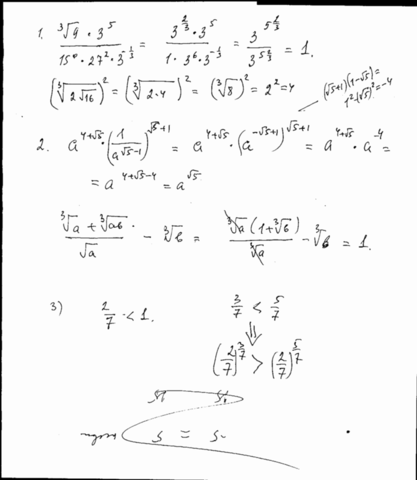 1. ∛9 · 3^5 / (15^0 · 27^2 · 3^(-1/3)) = 3^(2/3) · 3^5 / (1 · 3^6 · 3^(-1/3)) = 3^(5 2/3) / 3^(5 2/3) = 1.
(∛(2√16))^2 = (∛(2·4))^2 = (∛8)^2 = 2^2 = 4
(√5+1)(1-√5) =
1^2-(√5)^2 = -4
2. a^(4+√5) · (1/a^(√5-1))^(√5+1) = a^(4+√5) · (a^(-√5+1))^(√5+1) = a^(4+√5) · a^(-4) =
= a^(4+√5-4) = a^(√5)
(∛a + ∛(ab)) / √a - ∛b = ∛a (1+∛b) / ∛a - ∛b = 1.
3) 2/7 < 1. 3/7 < 5/7
⇓
(2/7)^(3/7) > (2/7)^(5/7)
5 = 5